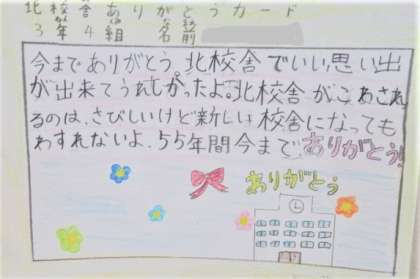 北校舎ありがとうカード
3年4組 名前
今までありがとう。北校舎でいい思い出
が出来てうれしかったよ。北校舎がこわされ
るのは、さびしいけど新しい校舎になっても
わすれないよ。55年間今までありがとう!
ありがとう